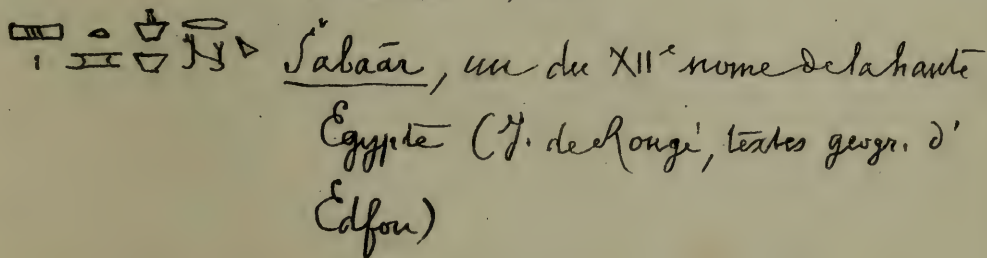 Šabaār, un du XII^e nome de la haute
Egypte (J. de Rougé, textes geogr. d'
Edfou)